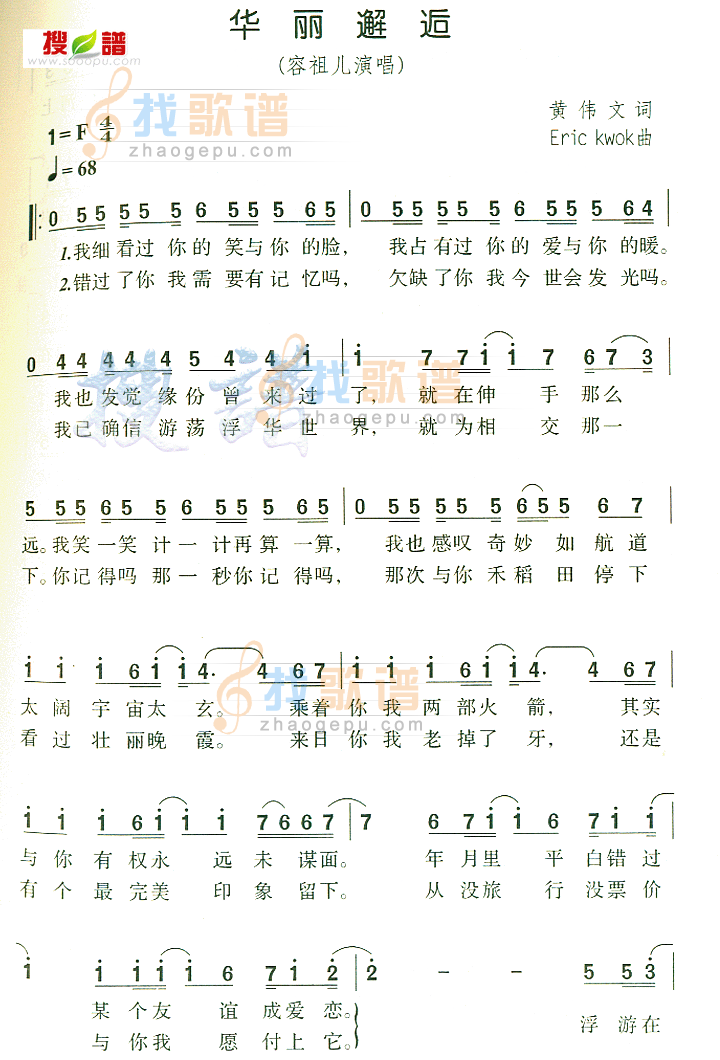 华丽邂逅
搜谱
www.sooopu.com
(容祖儿演唱)
找歌谱
zhaogepu.com
黄伟文词
1=F 4/4
Eric kwok曲
♩=68
0 55 55 5 6 55 5 65 | 0 55 55 5 5 55 5 64 |
1.我细看过 你的 笑与你 的脸, 我占有过 你的 爱与你 的暖。
2.错过了你 我需 要有记 忆吗, 欠缺了你 我今 世会发 光吗。
0 44 44 4 5 4 4 i | i 7 7i i 7 67 3
我也发觉 缘份 曾 来过 了, 就在伸 手 那么
我已确信 游荡 浮 华世 界, 就为相 交 那一
找歌谱
zhaogepu.com
5 55 65 5 6 55 5 65 | 0 55 55 5 655 6 7 |
远。我笑一笑 计一 计再算 一算, 我也感叹 奇妙 如 航道
下。你记得吗 那一 秒你记 得吗, 那次与你 禾稻 田 停下
i i i 6i i4· 4 67 | i i i 6i i4· 4 67 |
太阔宇宙太 玄。 乘着 你我两部火 箭, 其实
看过壮丽晚 霞。 来日 你我老掉了 牙, 还是
找歌谱
zhaogepu.com
i i i ii i 7667 | 7 67i i 6 7i i
与你有权永 远未谋面。 年月里 平 白错过
有个最完美 印象留下。 从没旅 行 没票价
i i ii i 6 7i 2 | 2 - - 55 3 |
某个友 谊 成爱恋。 浮游在
与你我 愿 付上它。